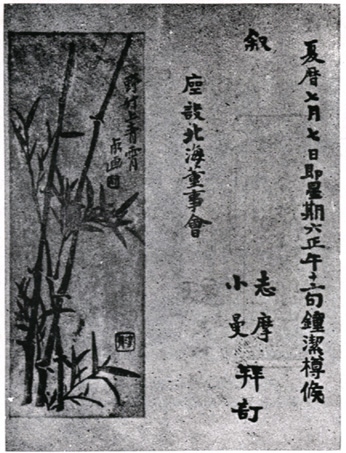 夏曆七月七日即星期六正午十二句鐘潔樽候
叙
座設北海董事會
志摩
小曼
拜訂
野竹上青霄